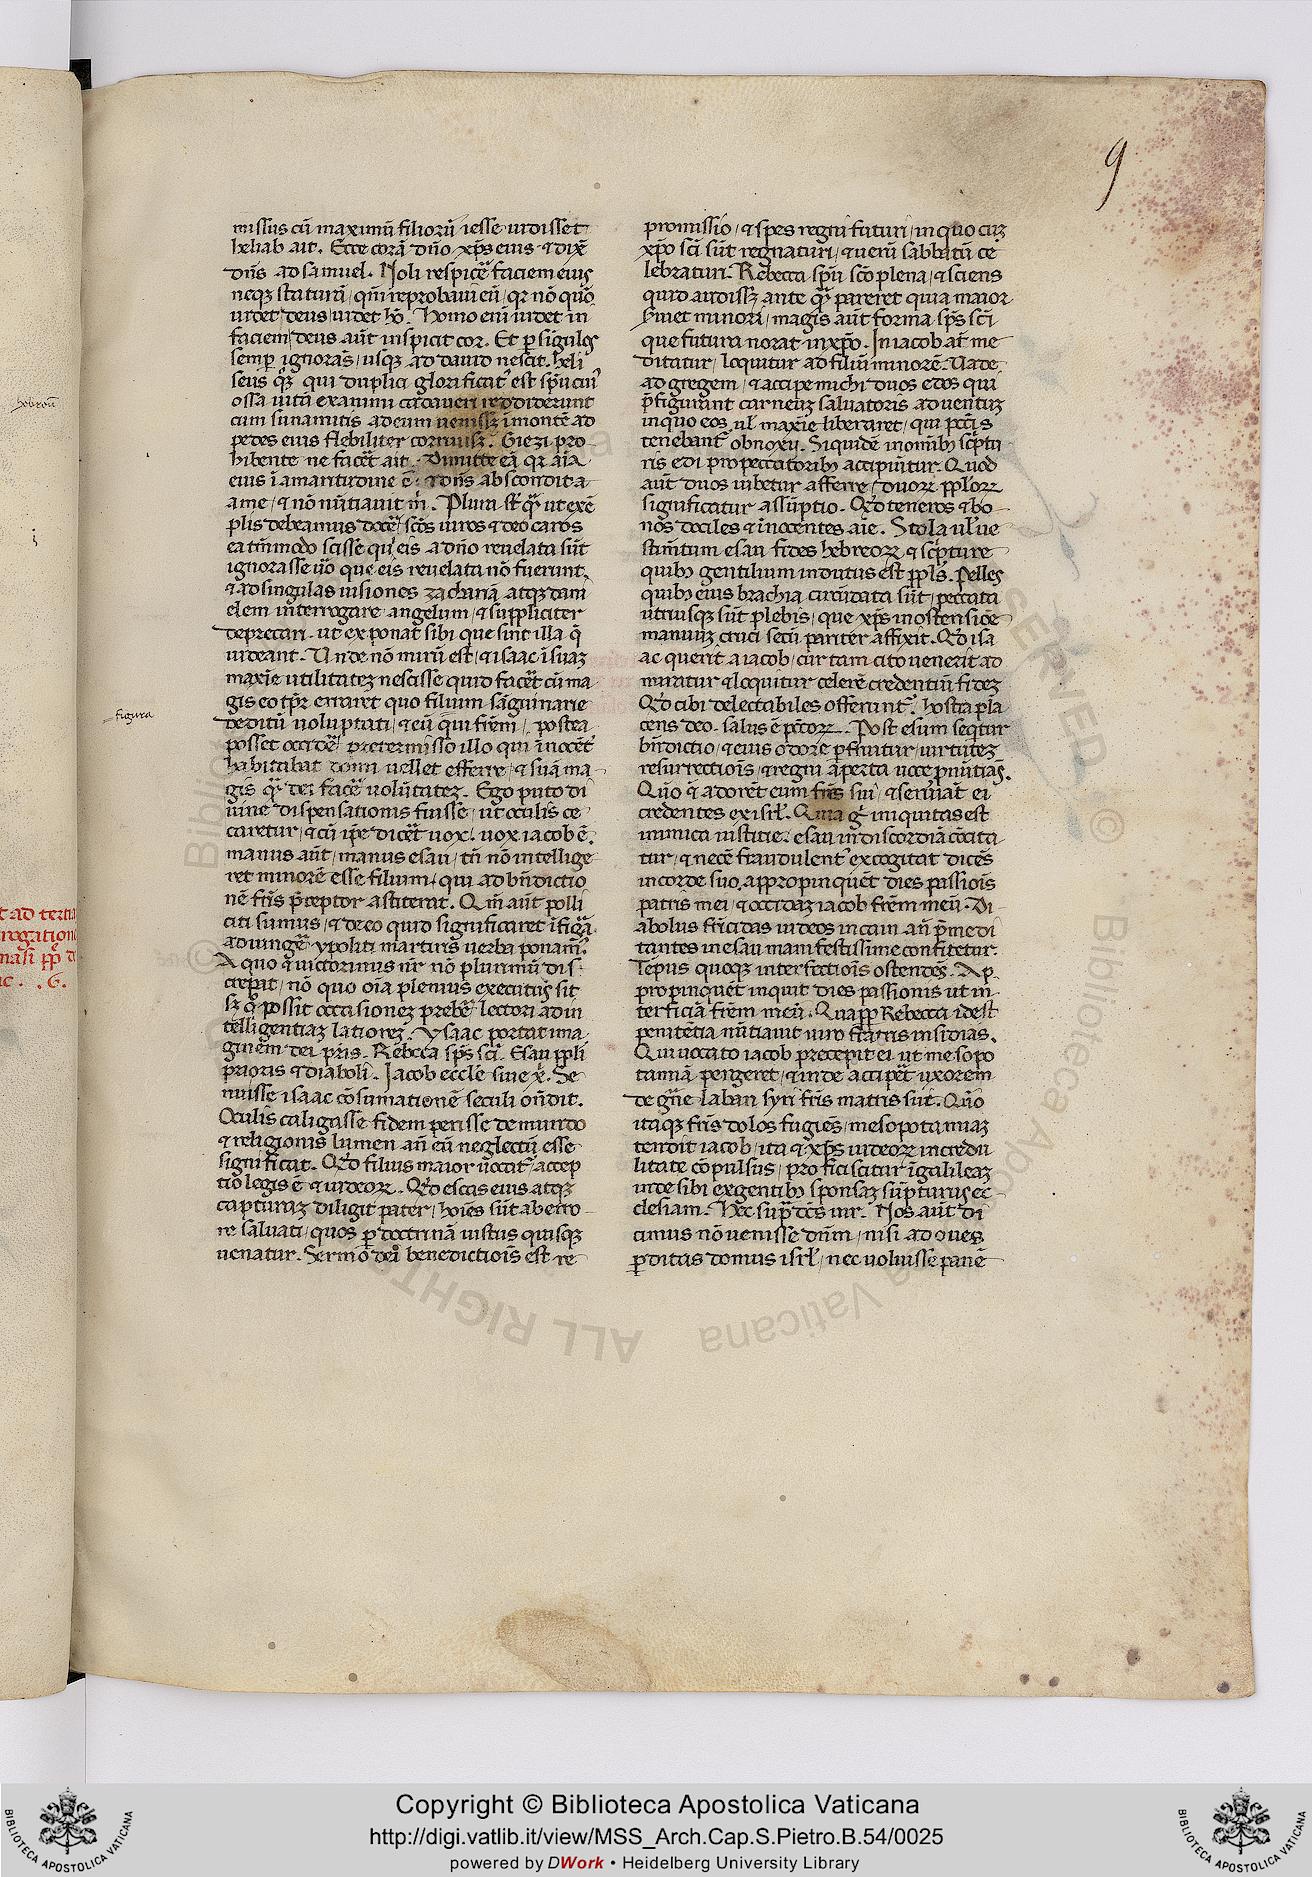 9
missus cũ maximũ filiorũ iesse uidisset
heliab ait. Ecce corã dño xp̃s eius ⁊ dix̃
dñs ad samuel. Noli respicẽ faciem eius
neqꝫ staturã, qm̃ reprobaui eũ, qꝛ nõ quõ
uidet deus uidet hõ. Homo eni uidet in
faciem deus aũt inspicit cor. Et ꝑ sĩgulos
semꝑ ignorãs, usqꝫ ad dauid nescit. heli
ossa uitã exanimi cadaueri reddiderunt
cum sunamitis ad eum uenissꝫ ĩ montẽ ad
pedes eius flebiliter corruissꝫ. Giezi pro-
hibente ne facẽt ait. Dimitte eã qꝛ aĩa
eius ĩ amaritudine ẽ. ⁊ dñs abscondit a
a me, ⁊ nõ nũtiauit m̃. Plura st̃ q̃ ut exẽ
plis debeamus docẽ scõs uiros ⁊ deo caros
ea tm̃modo scisse qũ eis a dño reuelata sũt
ignorasse ũo que eis reuelata nõ fuerunt.
⁊ ad singulas uisiones zachariã atqꝫ dani
elem interrogare angelum, ⁊ suppliciter
deprecari. ut exponat sibi que sint illa q̃
uideant. Unde nõ mirũ est, ⁊ isaac ĩ suaꝫ
maxĩe utilitateꝫ nescisse quid facẽt cũ ma
gis eo tp̃r erraret quo filium sãguinarie
deditũ uoluptati, ⁊ eũ qui frẽm, postea
posset occidẽ, pretermisso illo qui ĩnocẽt̃
habitabat domi uellet efferre, ⁊ suã ma-
gis q̃ dei facẽ uolũtateꝫ. Ego puto di
uine dispensationis fuisse, ut oculis ce
caretur, ⁊ cũ ip̃e dicẽt uox, uox iacob ẽ.
manus aũt, manus esau, tñ nõ intellige
ret minorẽ esse filium, qui ad bñdictio
nẽ fr̃is p̃ceptor astiterat. Qm̃ aũt polli
citi sumus, ⁊ de eo quid significaret ĩ figũa
adiungẽ ypoliti martiris uerba ponam̃.
A quo ⁊ uictorinus nr̃ nõ plurimũ dis-
crepat, nõ quo oĩa plenius executus sit
sꝫ q̃ possit occasioneꝫ prebẽ lectori ad in
telligentiaꝫ latioreꝫ. Ysaac portat ima
ginem dei pr̃is. Rebecca sp̃s sc̃i. Esau pp̃li
prioris ⁊ diaboli. Iacob eccle siue x̃. Se
nuisse isaac cõsumationẽ seculi oñdit.
Oculis caligasse fidem perisse de mundo
⁊ religionis lumen añ eũ neglectũ esse
significat. Qd̃ filius maior uocat̃, accep
tio legis ẽ ⁊ iudeoꝝ. Qd̃ escas eius atqꝫ
capturaꝫ diligit pater, hoĩes sũt ab erro-
re saluati, quos ꝑ doctrinã iustus quisqꝫ
uenatur. Sermo dei benedictiõis est re
promissio, ⁊ spes regni futuri, in quo cuꝫ
xp̃o sc̃i sũt regnaturi, ⁊ uerũ sabbatũ ce
lebraturi. Rebecca sp̃u sc̃o plena, ⁊ sciens
quid audissꝫ ante q̃ pareret quia maior
s̃uiet minori, magis aũt forma sp̃s sc̃i
que futura norat in xp̃o. In iacob añ me
ditatur, loquitur ad filiũ minorẽ. Uade
ad gregem, ⁊ accipe michi duos edos qui
p̃figurant carneuꝫ saluatoris aduentuꝫ
in quo eos ul̃ maxĩe liberaret, qui pcc̃is
tenebant̃ obnoxii. Siquidẽ in omĩbꝫ sc̃ptu
ris edi pro peccatoribꝫ accipiũtur. Quod
aũt duos iubetur afferre, duoꝝ pp̃loꝝ
significatur assũptio. Qd̃ teneros ⁊ bo-
nos dociles ⁊ ĩnocentes aĩe. Stola ul̃ ue
stim̃tum esau fides hebreoꝝ ⁊ sc̃pture
quibꝫ gentilium indutus est pp̃ls. Pelles
quibꝫ eius brachia circũdata sũt, peccata
utriusqꝫ sũt plebis, que xp̃s in ostensiõe
manuuꝫ cruci secũ pariter affixit. Qd̃ isa
ac querit a iacob, cur tam cito uenerit ad
miratur ⁊ loquitur celerẽ credentiũ fideꝫ
Qd̃ cibi delectabiles offerunt̃. hostia pla
cens deo. salus ẽ pcc̃oꝝ. Post esum seq̃tur
bñdictio, ⁊ eius odore ꝑfruitur, uirtuteꝫ
resurrectiõis, ⁊ regni aperta uoce pnũtiãs.
Quõ ⁊ adorẽt eum fr̃is sui, ⁊ seruiãt ei
credentes ex isrl̃. Quia g̃ iniquitas est
inimica iustitie, esau in discordiã cõcita
tur, ⁊ necẽ fraudulent̃ excogitat dicẽs
in corde suo, appropinquẽt dies passiõis
patris mei, ⁊ occidaꝫ iacob frẽm meũ. Di
abolus fr̃icidas iudeos in cain añ p̃medi
tantes in esau manifestissime confitetur.
Tẽpus quoqꝫ interfectiõis ostendẽs. Ap
propinquẽt inquit dies passionis ut in
terficiã frẽm meũ. Quapp̃ Rebecca idest
penitẽtia nũtiauit uiro fratris insidias.
Qui uocato iacob precepit ei ut mesopo
tamiã pergeret, ⁊ inde accipẽt uxorem
de gñe laban syri fr̃is matris sue. Quõ
itaqꝫ fr̃is dolos fugiẽs, mesopotamiaꝫ
tendit iacob, ita ⁊ xp̃s iudeoꝝ incredu
litate cõpulsus, proficiscitur ĩ galileaꝫ
inde sibi ex gentibꝫ sponsaꝫ sũpturus ec
clesiam. Hec sup̃dc̃s uir. Nos aũt di
cimus nõ uenisse dñm, nisi ad oues
ꝑditas domus isrl̃, nec uoluisse panẽ
hebron
figura
t ad tertia
rogation
masi pp̃ d
c. .6.
Copyright © Biblioteca Apostolica Vaticana
http://digi.vatlib.it/view/MSS_Arch.Cap.S.Pietro.B.54/0025
powered by DWork • Heidelberg University Library
BIBLIOTECA APOSTOLICA VATICANA
BIBLIOTECA APOSTOLICA VATICANA